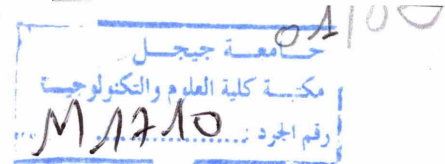 01/00
جامعة جيجل
مكتبة كلية العلوم والتكنولوجيا
رقم الجرد : M1710